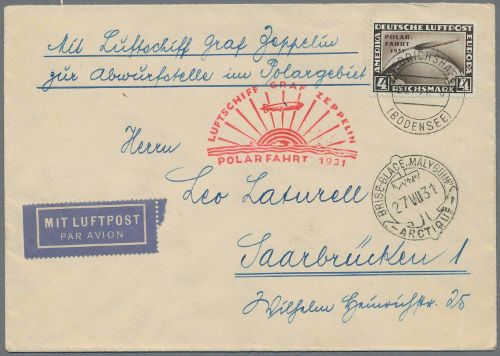 Mit Luftschiff Graf Zeppelin
zur Abwurfstelle im Polargebiet
DEUTSCHE LUFTPOST
POLAR-
FAHRT
1931
AMERIKA
EUROPA
4 REICHSMARK 4
(BODENSEE)
LUFTSCHIFF GRAF ZEPPELIN
POLARFAHRT 1931
BRISE-GLACE
27 VII 31
ARCTIQUE
Herrn
Leo Laturell
MIT LUFTPOST
PAR AVION
Saarbrücken 1
Wilhelm Heinrichstr. 25